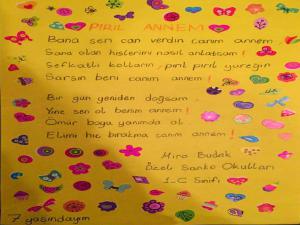 PIRIL ANNEM
Bana sen can verdin canım annem
Sana olan hislerimi nasıl anlatsam!
Şefkatli kolların, pırıl pırıl yüreğin
Sarsın beni canım annem!
Bir gün yeniden doğsam,
Yine sen ol benim annem!
Ömür boyu yanımda ol.
Elimi hiç bırakma canım annem!
Mira Budak
Özel Sanko Okulları
1-C Sınıfı
7 yaşındayım